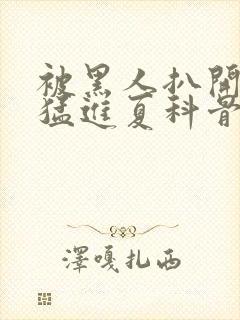 被黑人扒開
猛進夏科骨
澤嘎扎西